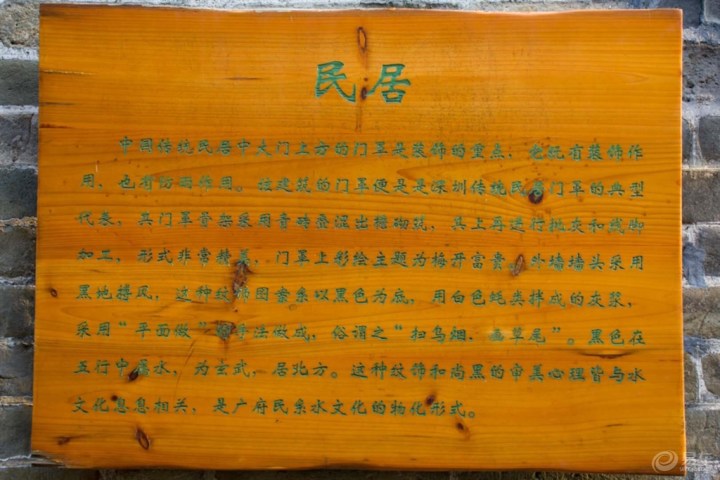 民居
中国传统民居中大门上方的门罩是装饰的重点，它既有装饰作
用，也有防雨作用。该建筑的门罩便是是深圳传统民居门罩的典型
代表，其门罩骨架采用青砖叠涩出檐砌筑，其上再进行批灰和线脚
加工，形式非常精美，门罩上彩绘主题为梅开富贵，外墙墙头采用
黑地搏风，这种纹饰图案系以黑色为底，用白色蚝类拌成的灰浆，
采用“平面做” 手法做成，俗谓之“扫乌烟，画草尾”。黑色在
五行中属水，为玄武，居北方。这种纹饰和尚黑的审美心理皆与水
文化息息相关，是广府民系水文化的物化形式。